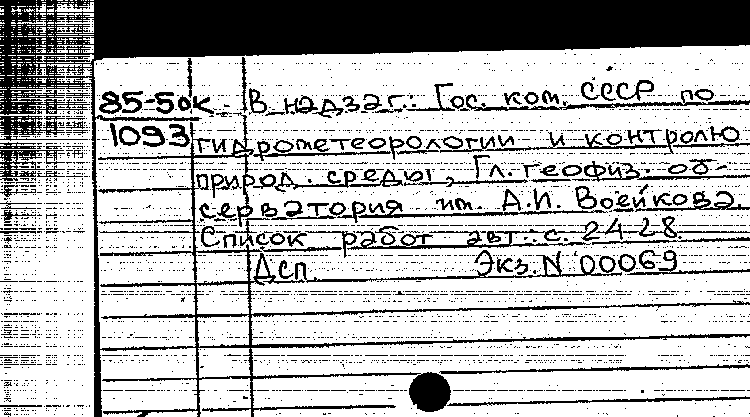 85-5ок В надзаг.: Гос. ком. СССР по
1093 гидрометеорологии и контролю
природ. среды, Гл. геофиз. об-
серватория им. А.И. Воейкова.
Список работ авт.: с. 24-28.
Дсп. Экз. N 00069